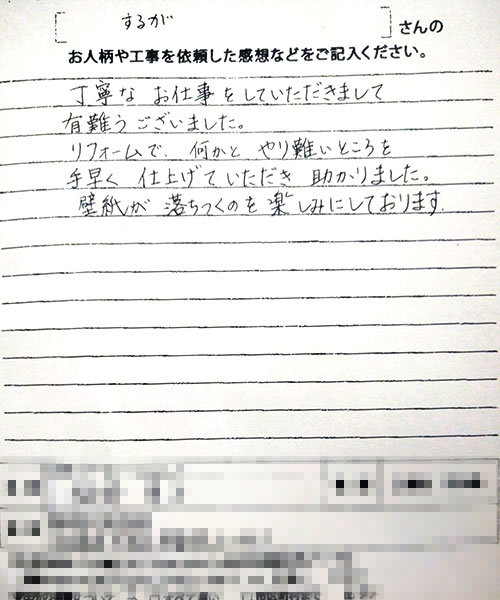 [ するが ] さんの
お人柄や工事を依頼した感想などをご記入ください。
丁寧な お仕事をしていただきまして
有難うございました。
リフォームで、何かと やり難いところを
手早く 仕上げていただき 助かりました。
壁紙が 落ちつくのを楽しみにしております。